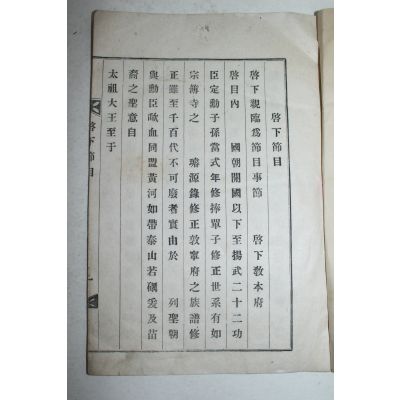 啓下節目
啓下親臨爲節目事節 啓下敎本府
啓目內 國朝開國以下至揚武二十二功
臣定勳子孫當式年修捧單子修正世系有如
宗簿寺之 璿源錄修正敦寧府之族譜修
正雖至千百代不可廢者實由於 列聖朝
與勳臣歃血同盟黃河如帶泰山若礪爰及苗
裔之聖意自
太祖大王至于
啓下節目
一